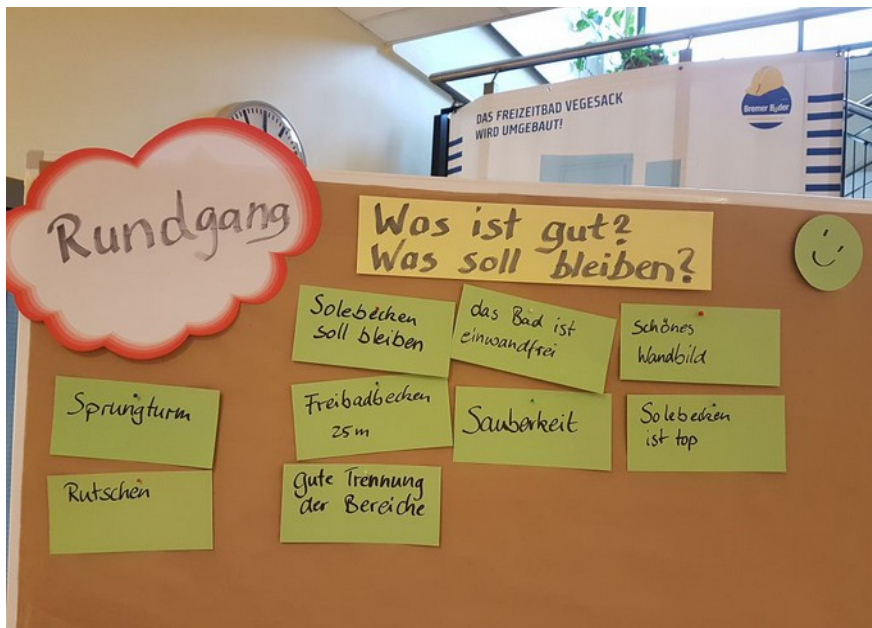 DAS FREIZEITBAD VEGESACK
WIRD UMGEBAUT!
Bremer Bäder
Rundgang
Was ist gut?
Was soll bleiben?
Solebecken
soll bleiben
das Bad ist
einwandfrei
schönes
Wandbild
Sprungturm
Freibadbecken
25m
Sauberkeit
Solebecken
ist top
Rutschen
gute Trennung
der Bereiche